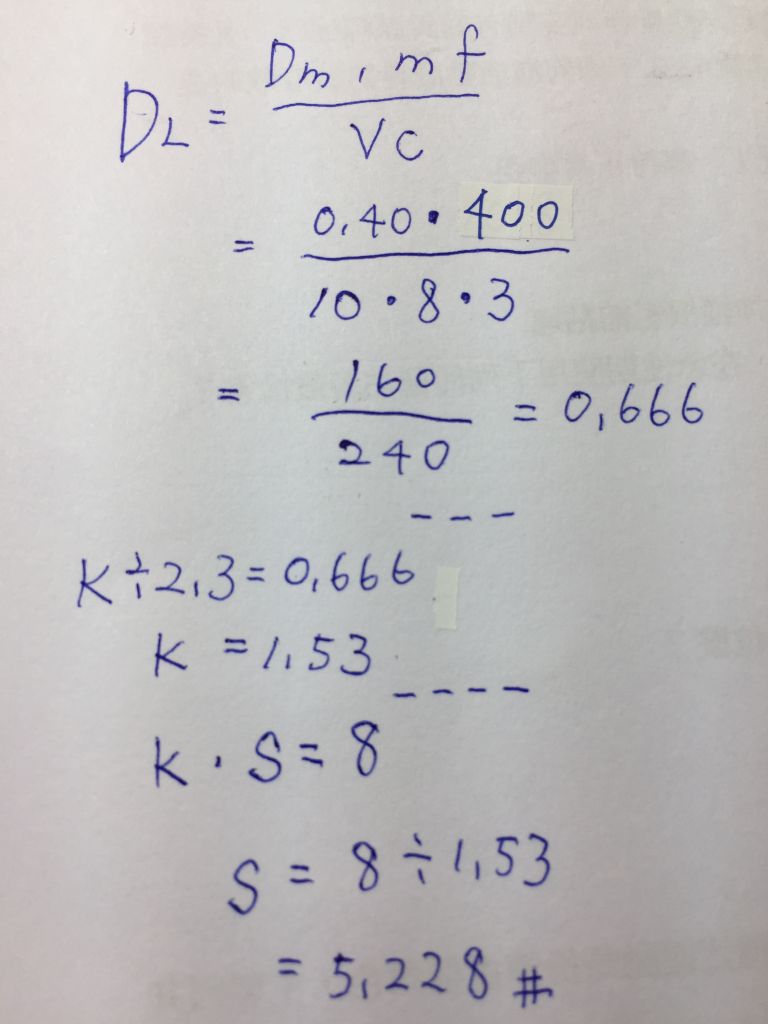 DL = Dm . mf / VC
= 0.40 · 400 / 10 · 8 · 3
= 160 / 240 = 0.666
- - -
K ÷ 2.3 = 0.666
K = 1.53
- - - -
K · S = 8
S = 8 ÷ 1.53
= 5.228 #